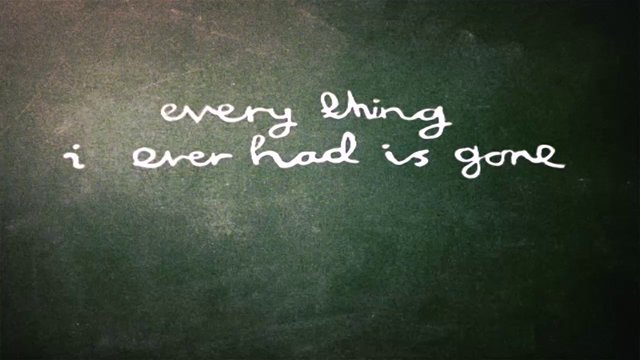 every thing
i ever had is gone